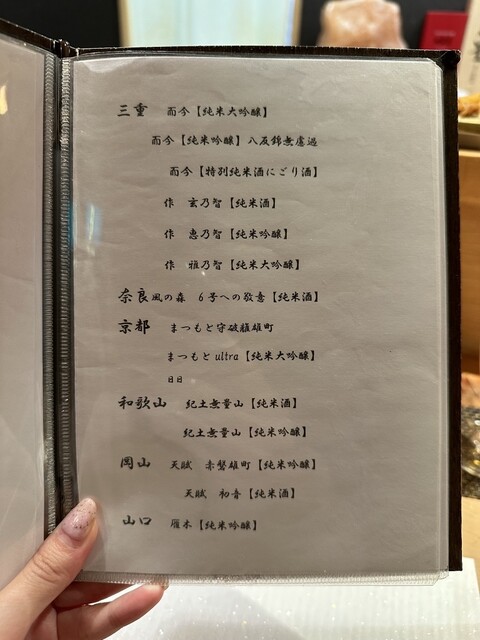 三重 而今【純米大吟醸】
而今【純米吟醸】八反錦無濾過
而今【特別純米酒にごり酒】
作 玄乃智【純米酒】
作 恵乃智【純米吟醸】
作 雅乃智【純米大吟醸】
奈良 風の森 6号への敬意【純米酒】
京都 まつもと守破離雄町
まつもとultra【純米大吟醸】
日日
和歌山 紀土無量山【純米酒】
紀土無量山【純米吟醸】
岡山 天賦 赤磐雄町【純米吟醸】
天賦 初音【純米酒】
山口 雁木【純米吟醸】